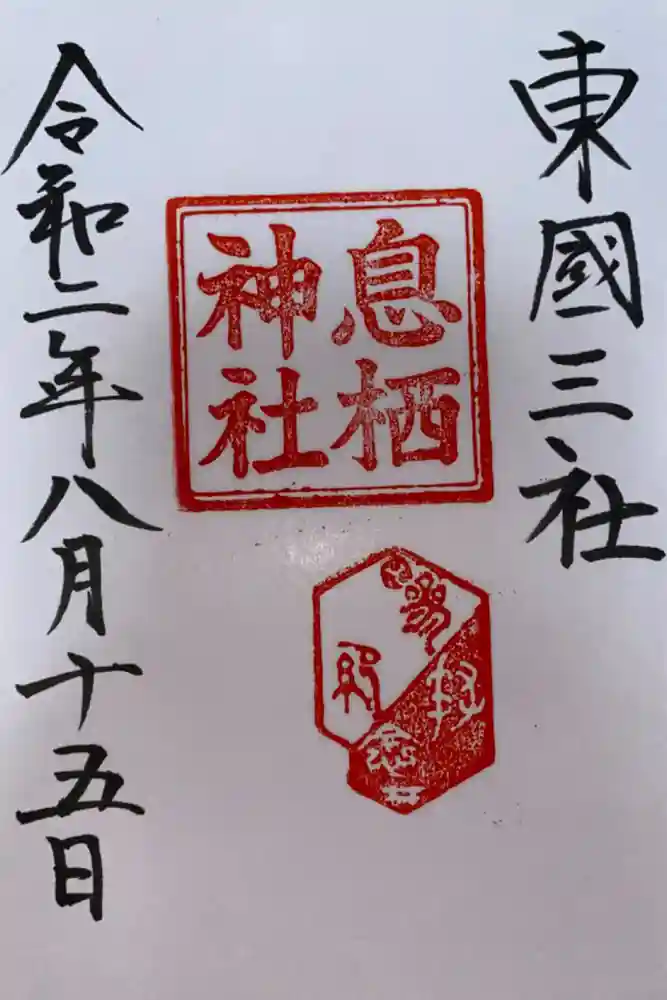 東國三社
息栖
神社
令和二年八月十五日